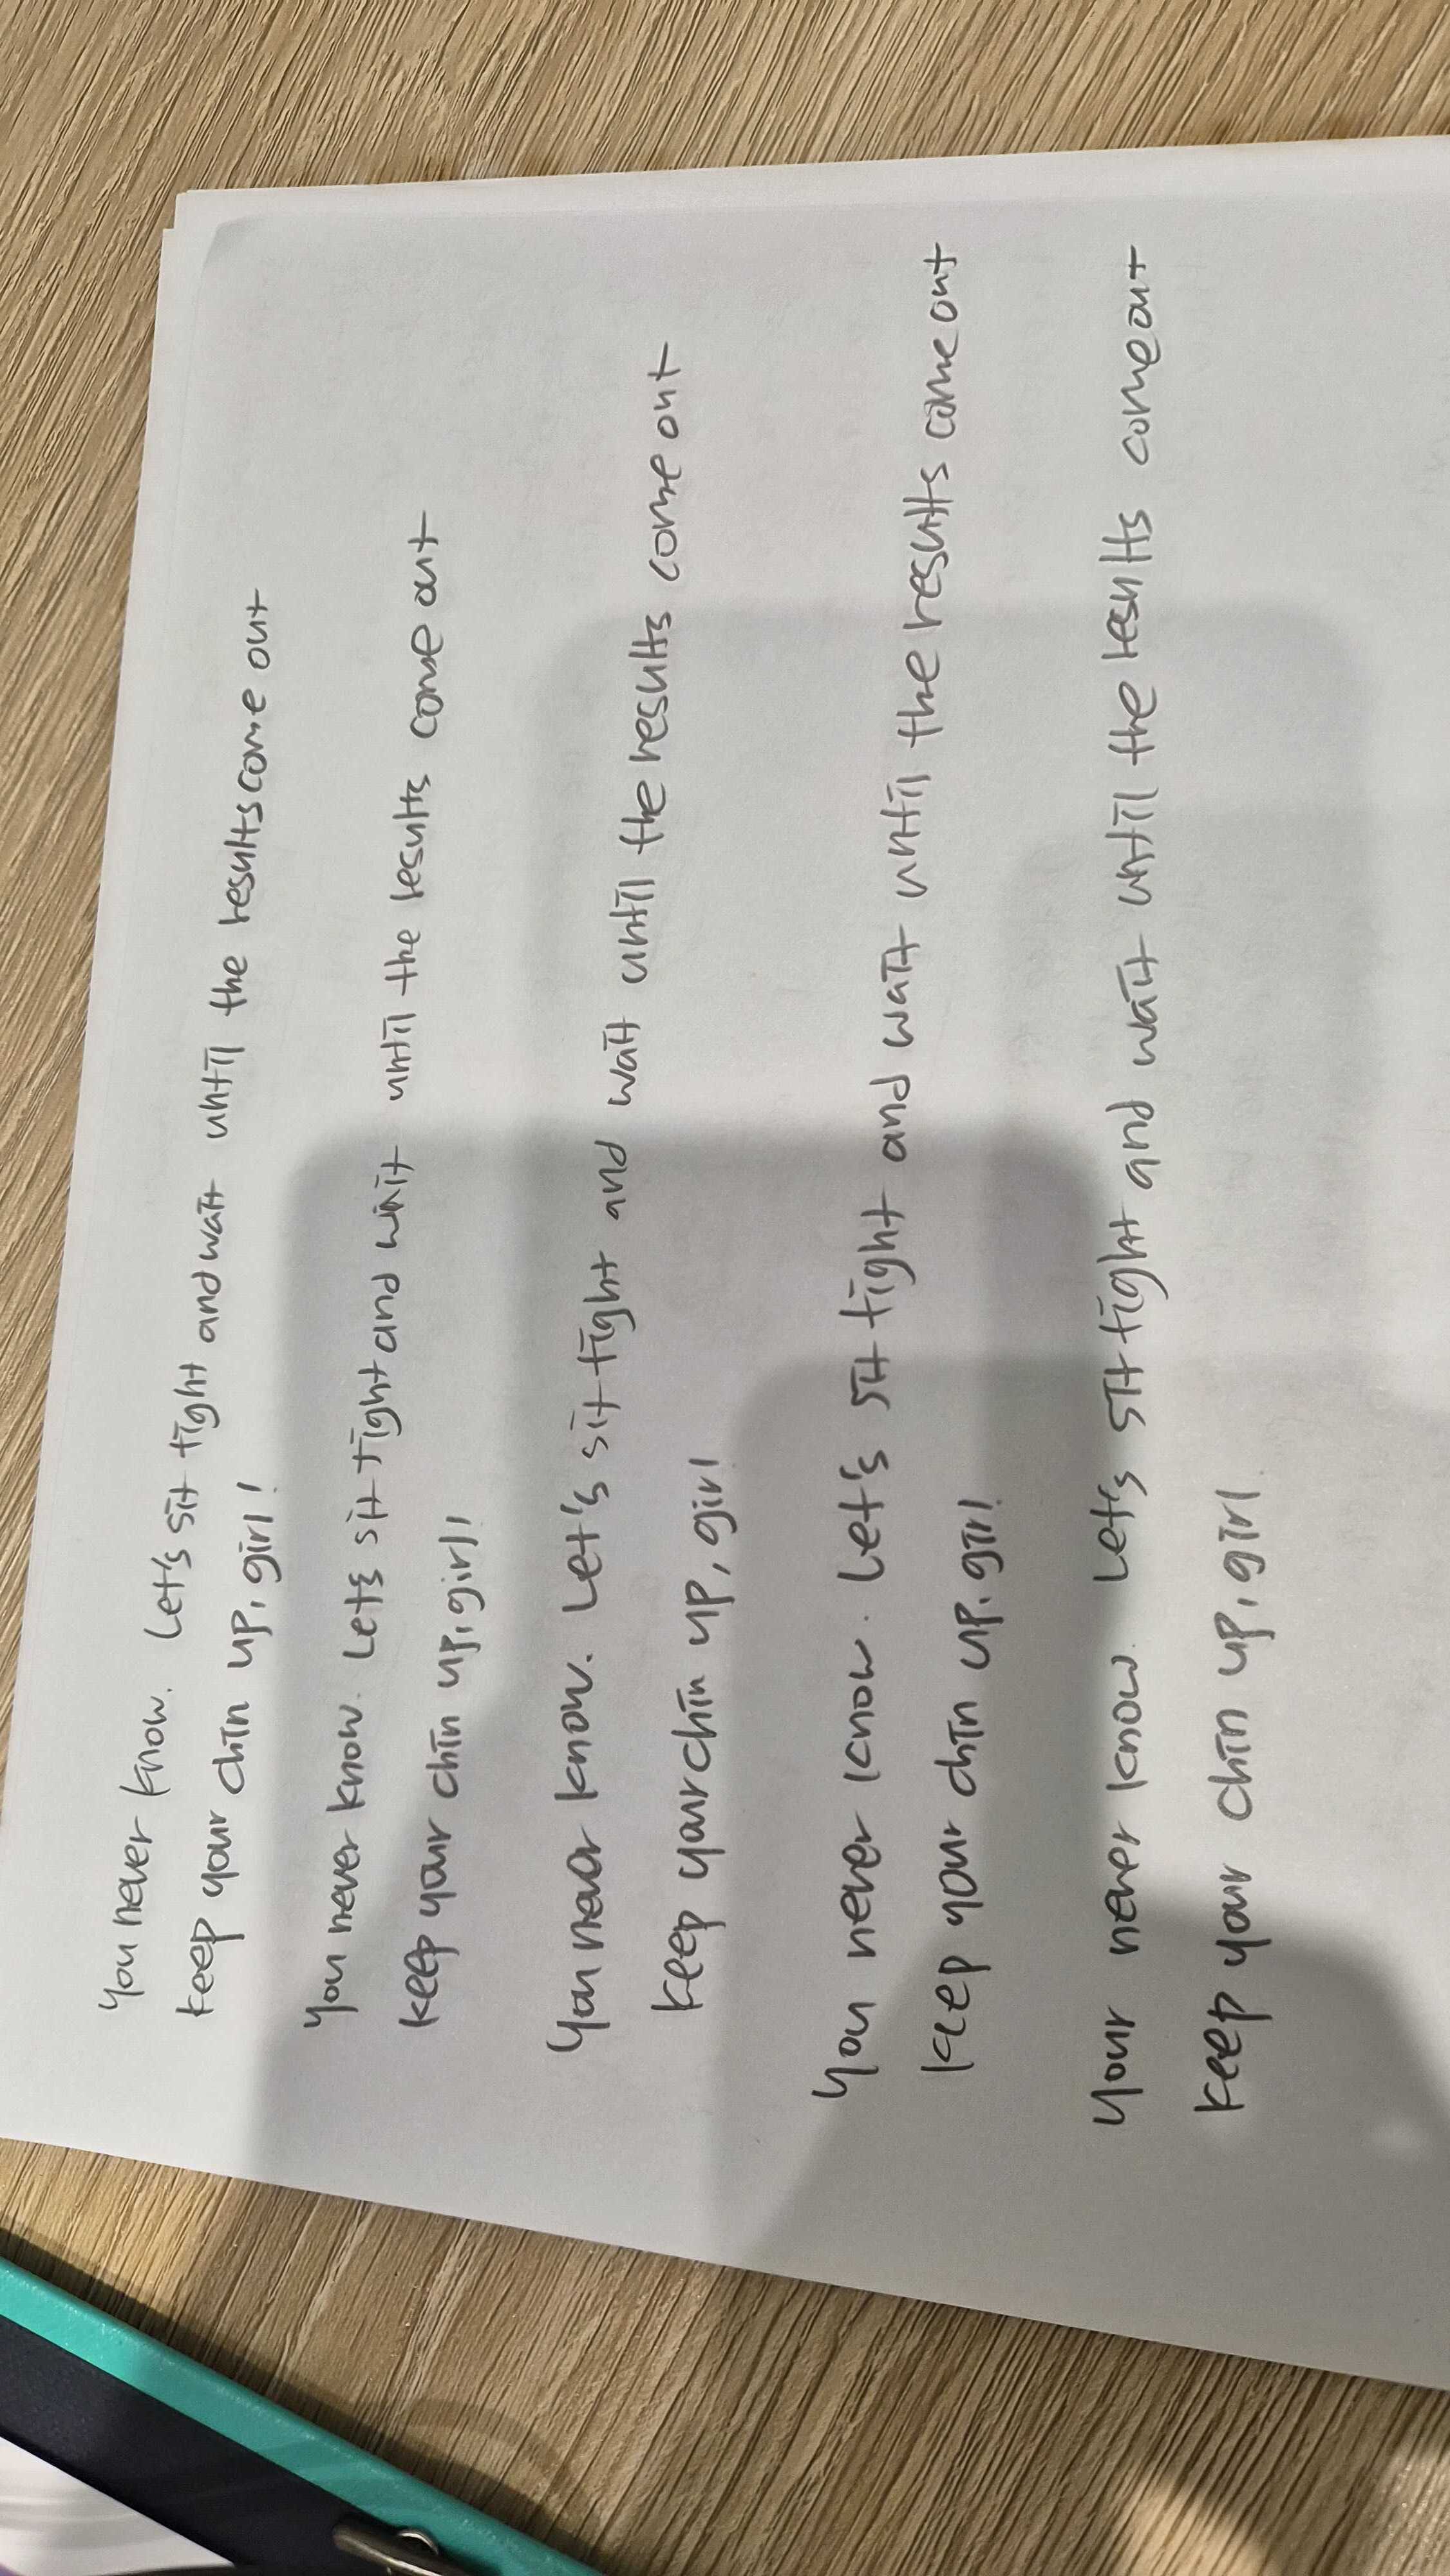 You never know. Let's sit tight and wait until the results come out
keep your chin up, girl!
You never know. Let's sit tight and wait until the results come out
keep your chin up, girl!
You never know. Let's sit tight and wait until the results come out
keep your chin up, girl
You never know. Let's sit tight and wait until the results come out
keep your chin up, girl
Your never know. Let's sit tight and wait until the results come out
keep your chin up, girl